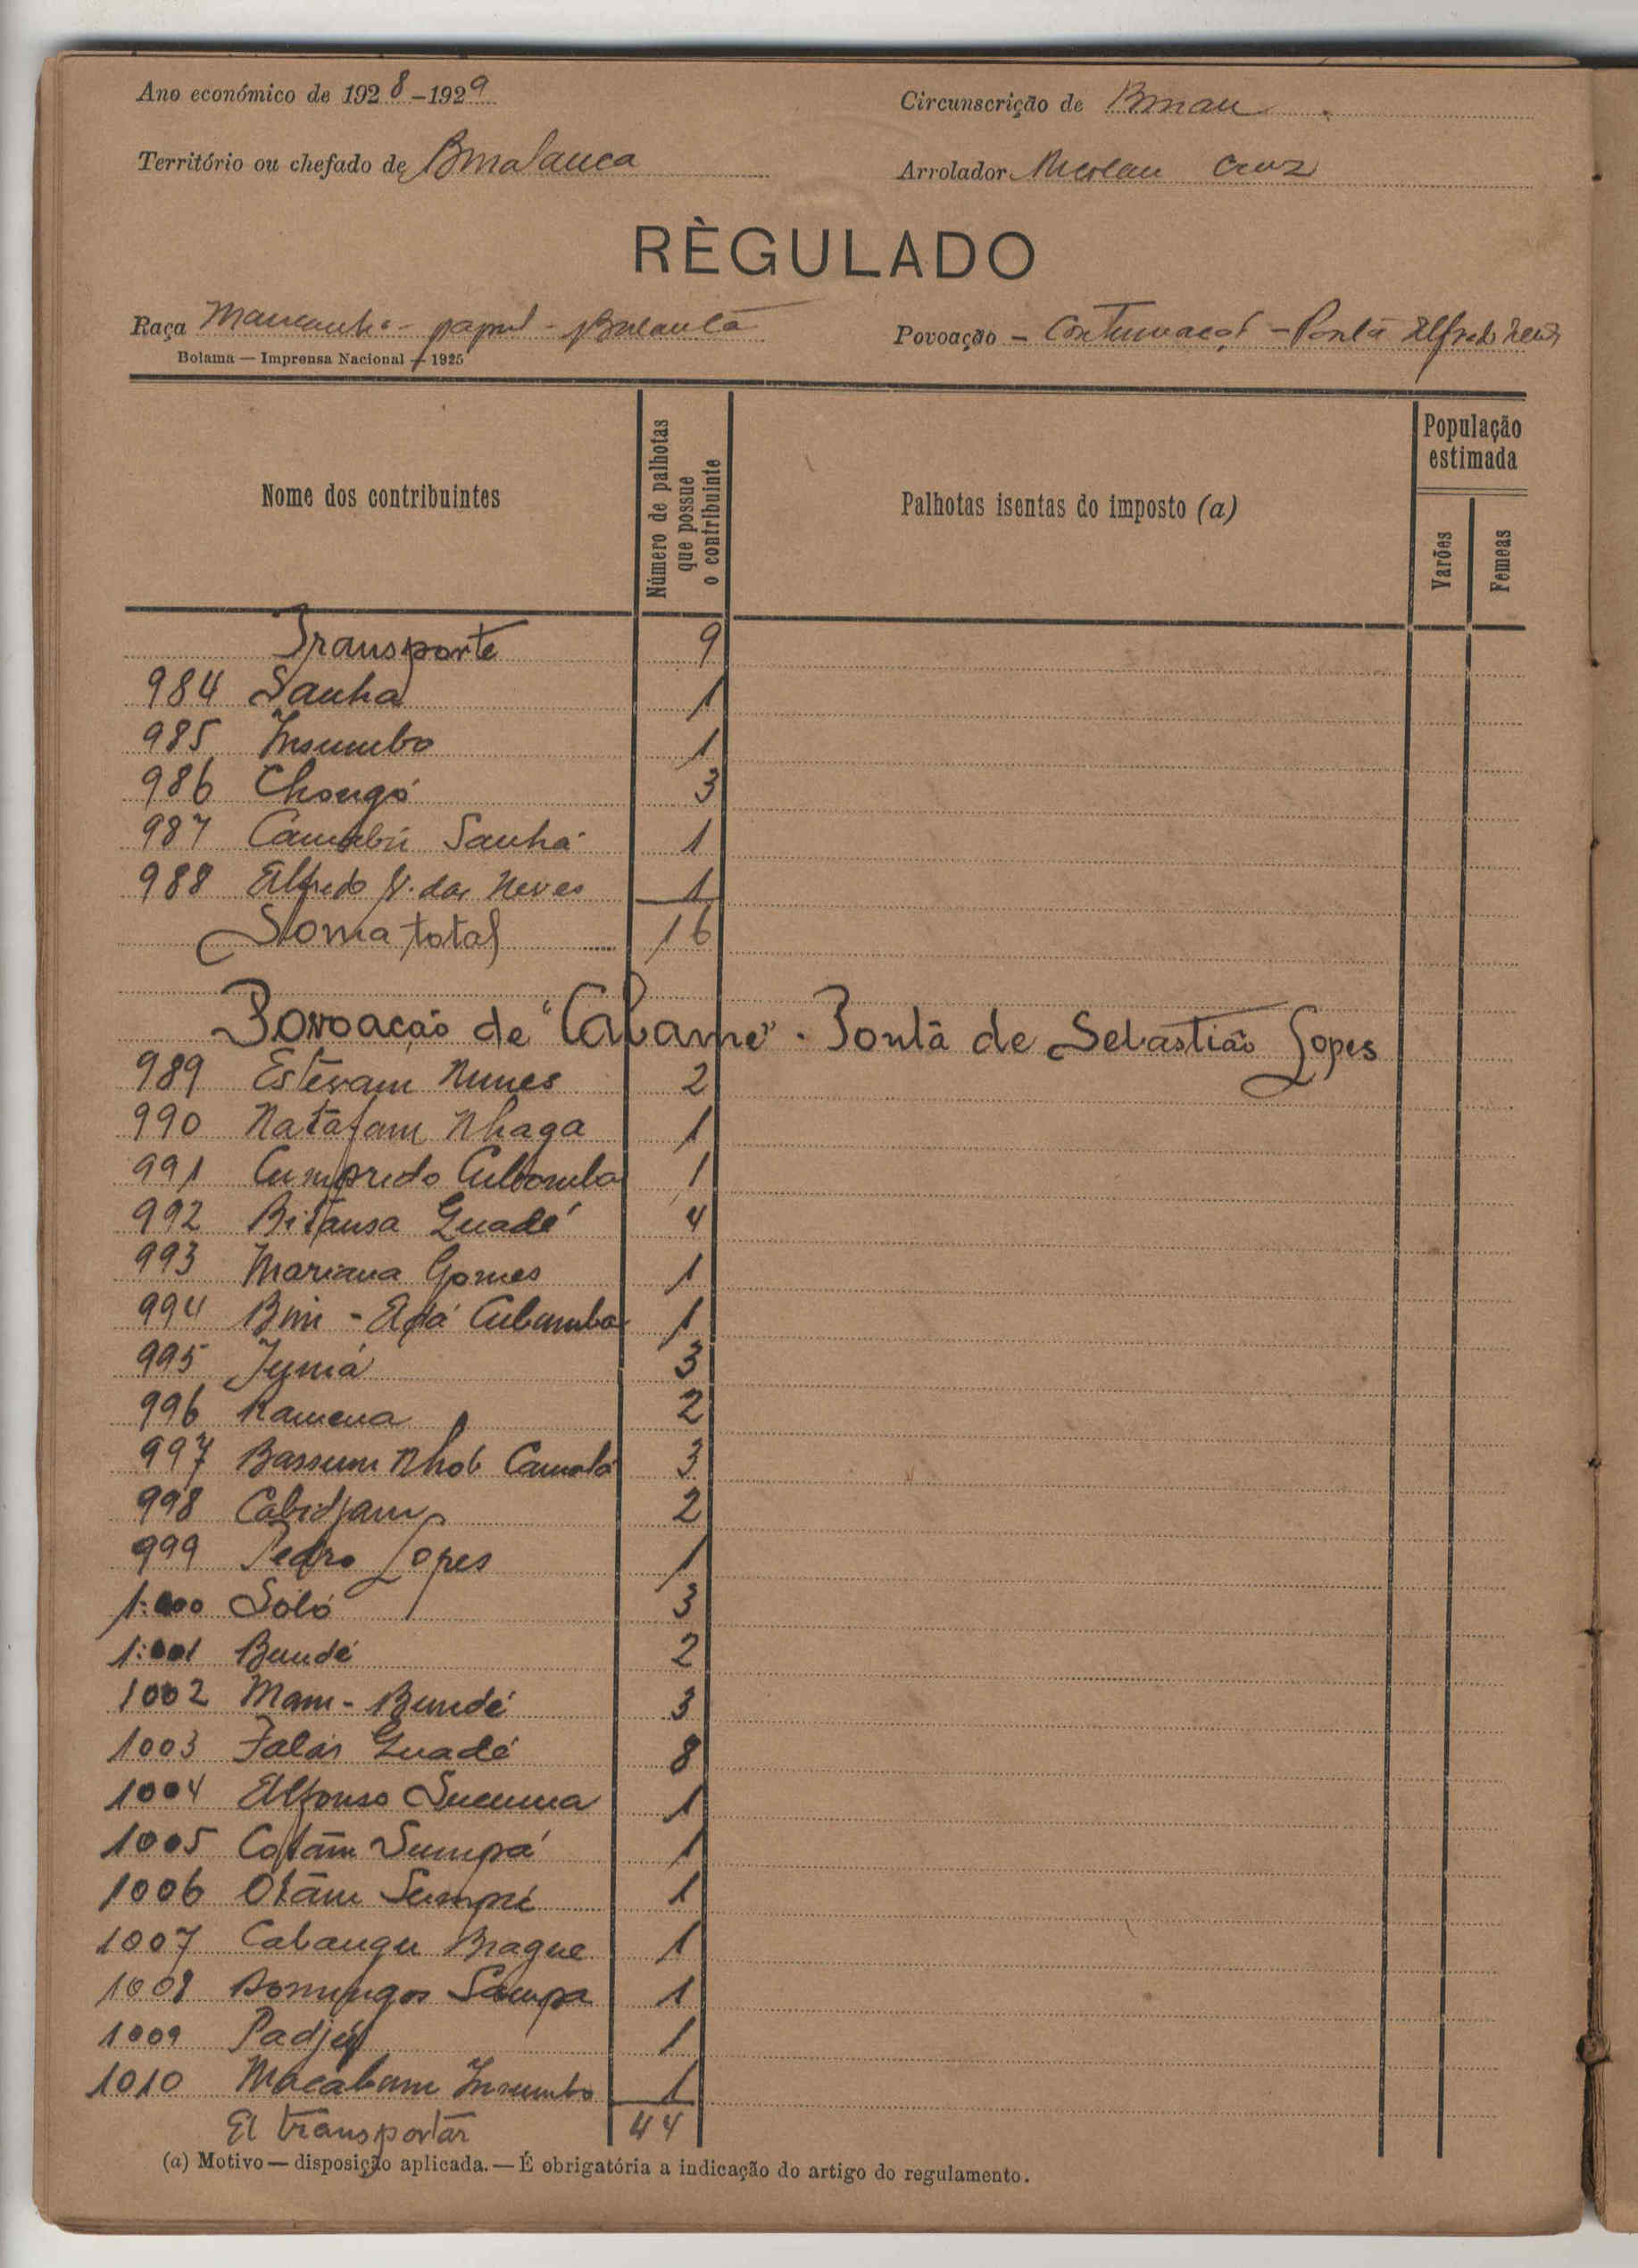 Ano económico de 1928-1929
Circunscrição de Bmau
Território ou chefado de Bmalanca
Arrolador Nicolau Cruz
RÈGULADO
Raça Mancanha - papel - Balanta
Povoação - Continuação - Ponta Alfredo Neves
Bolama — Imprensa Nacional — 1925
Nome dos contribuintes
Número de palhotas que possue o contribuinte
Palhotas isentas do imposto (a)
População estimada
Varões
Femeas
Transporte 9
984 Sanha 1
985 Insumbo 1
986 Chongó 3
987 Sanhá 1
988 Alfredo V. das Neves 1
Soma total 16
Povoação de "Cabame" - Pontã de Sebastião Lopes
989 Estevam Nunes 2
990 Natafam Nhaga 1
991 Cumprido Cubomba 1
992 Bitansa Guadé 4
993 Mariana Gomes 1
994 Bim - Cubumba 1
995 Jumá 3
996 Ramena 2
997 Bassum Nhob Camala 3
998 Cabidjam 2
999 Pedro Lopes 1
1:000 Soló 3
1:001 Bundé 2
1002 Mam - Bundé 3
1003 Falár Guadé 8
1004 Alfonso Sucuma 1
1005 Cotãm Sumpá 1
1006 Otãm Sumpé 1
1007 Cabangu Brague 1
1008 Domingos Sampa 1
1009 1
1010 Macabam Insumbo 1
A transportar 44
(a) Motivo — disposição aplicada. — É obrigatória a indicação do artigo do regulamento.